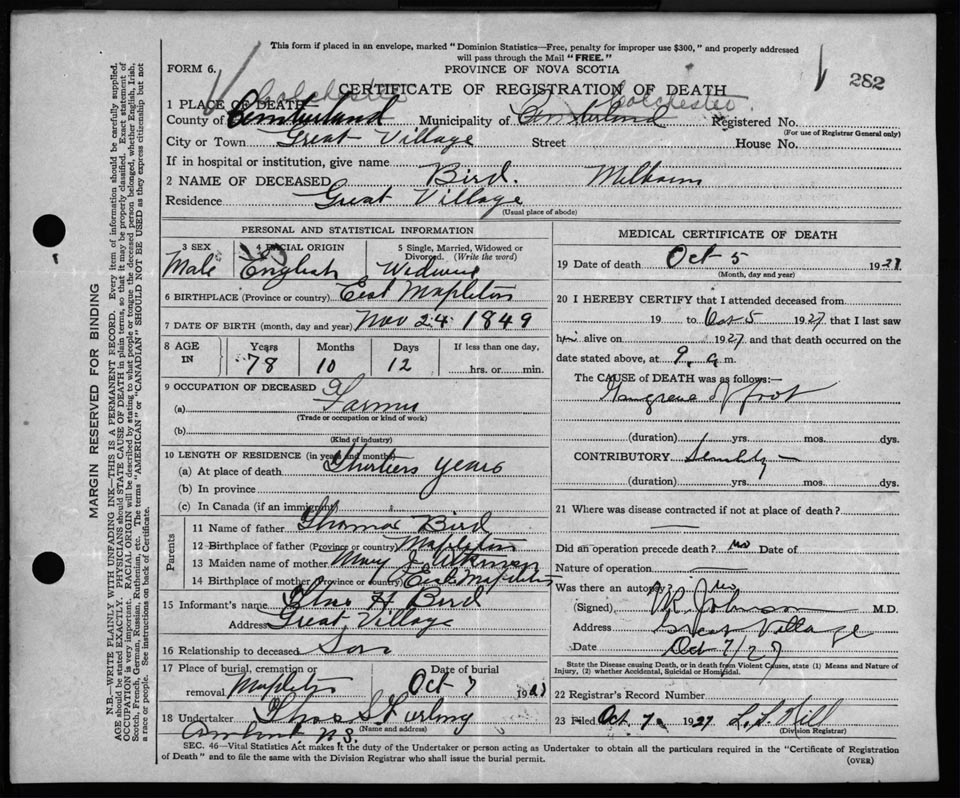 This form if placed in an envelope, marked "Dominion Statistics—Free, penalty for improper use $300," and properly addressed
will pass through the Mail "FREE."
FORM 6.
PROVINCE OF NOVA SCOTIA
282
CERTIFICATE OF REGISTRATION OF DEATH
Colchester Colchester
1 PLACE OF DEATH—
County of Cumberland Municipality of Cumberland Registered No.
(For use of Registrar General only)
City or Town Great Village Street House No.
If in hospital or institution, give name
2 NAME OF DECEASED Bird.
Residence Great Village
(Usual place of abode)
PERSONAL AND STATISTICAL INFORMATION
3 SEX
Male
4 RACIAL ORIGIN
English
5 Single, Married, Widowed or
Divorced. (Write the word)
6 BIRTHPLACE (Province or country) East Mapleton
7 DATE OF BIRTH (month, day and year) Nov 24 1849
8 AGE
IN
Years Months Days If less than one day,
78 10 12 hrs. or min.
9 OCCUPATION OF DECEASED
(a) Farmer
(Trade or occupation or kind of work)
(b)
(Kind of industry)
10 LENGTH OF RESIDENCE (in years and months)
(a) At place of death years
(b) In province
(c) In Canada (if an immigrant)
Parents
11 Name of father Thomas Bird
12 Birthplace of father (Province or country) Mapleton
13 Maiden name of mother Mary
14 Birthplace of mother (Province or country) East Mapleton
15 Informant's name H Bird
Address Great Village
16 Relationship to deceased Son
17 Place of burial, cremation or
removal Mapleton
Date of burial
Oct 7 19
18 Undertaker
(Name and address)
N.S.
MEDICAL CERTIFICATE OF DEATH
19 Date of death Oct 5 1927
(Month, day and year)
20 I HEREBY CERTIFY that I attended deceased from
19 to Oct 5 1927 that I last saw
him alive on 1927 and that death occurred on the
date stated above, at 9. a.m.
The CAUSE of DEATH was as follows:—
Gangrene of foot
(duration) yrs. mos. dys.
CONTRIBUTORY Senility
(duration) yrs. mos. dys.
21 Where was disease contracted if not at place of death?
Did an operation precede death? no Date of
Nature of operation
Was there an autopsy? no
(Signed) Johnson M.D.
Address Great Village
Date Oct 7/27
State the Disease causing Death, or in death from Violent Causes, state (1) Means and Nature of
Injury, (2) whether Accidental, Suicidal or Homicidal.
22 Registrar's Record Number
23 Filed Oct 7 1927 L. S. Hill
(Division Registrar)
SEC. 46—Vital Statistics Act makes it the duty of the Undertaker or person acting as Undertaker to obtain all the particulars required in the "Certificate of Registration
of Death" and to file the same with the Division Registrar who shall issue the burial permit.
(OVER)
MARGIN RESERVED FOR BINDING
N.B.—WRITE PLAINLY WITH UNFADING INK—THIS IS A PERMANENT RECORD. Every item of information should be carefully supplied.
AGE should be stated EXACTLY. PHYSICIANS should STATE CAUSE OF DEATH in plain terms, so that it may be properly classified. Exact statement of
OCCUPATION is very important. RACIAL ORIGIN will be described by stating to what people or tongue the deceased person belonged, whether English, Irish,
Scotch, French, German, Russian, Ruthenian, etc. The terms "AMERICAN" or "CANADIAN" SHOULD NOT BE USED as they express citizenship but not
a race or people. See instructions on back of Certificate.